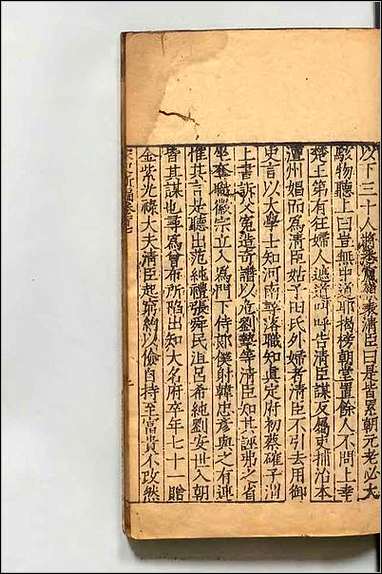 以下三十人將悉竄嶺表清臣曰是皆累朝元老必大
駭物聽上曰豈無中道耶揭榜朝堂置餘人不問上幸
楚王第有狂婦人遮道呼告清臣謀反屬吏捕治本
澶州娼而為清臣姑子田氏外婦者清臣不引去用御
史言以大學士知河南尋落職知真定府初蔡確子渭
上書訴父冤造奇譖以危劉摯等清臣知其誣弗之省
坐奪職徽宗立入為門下侍郎僕射韓忠彥與之有連
惟其言是聽出范純禮張舜民沮呂希純劉安世入朝
皆其謀也尋為曾布所陷出知大名府卒年七十一贈
金紫光祿大夫清臣起窮約以儉自持至富貴不改然